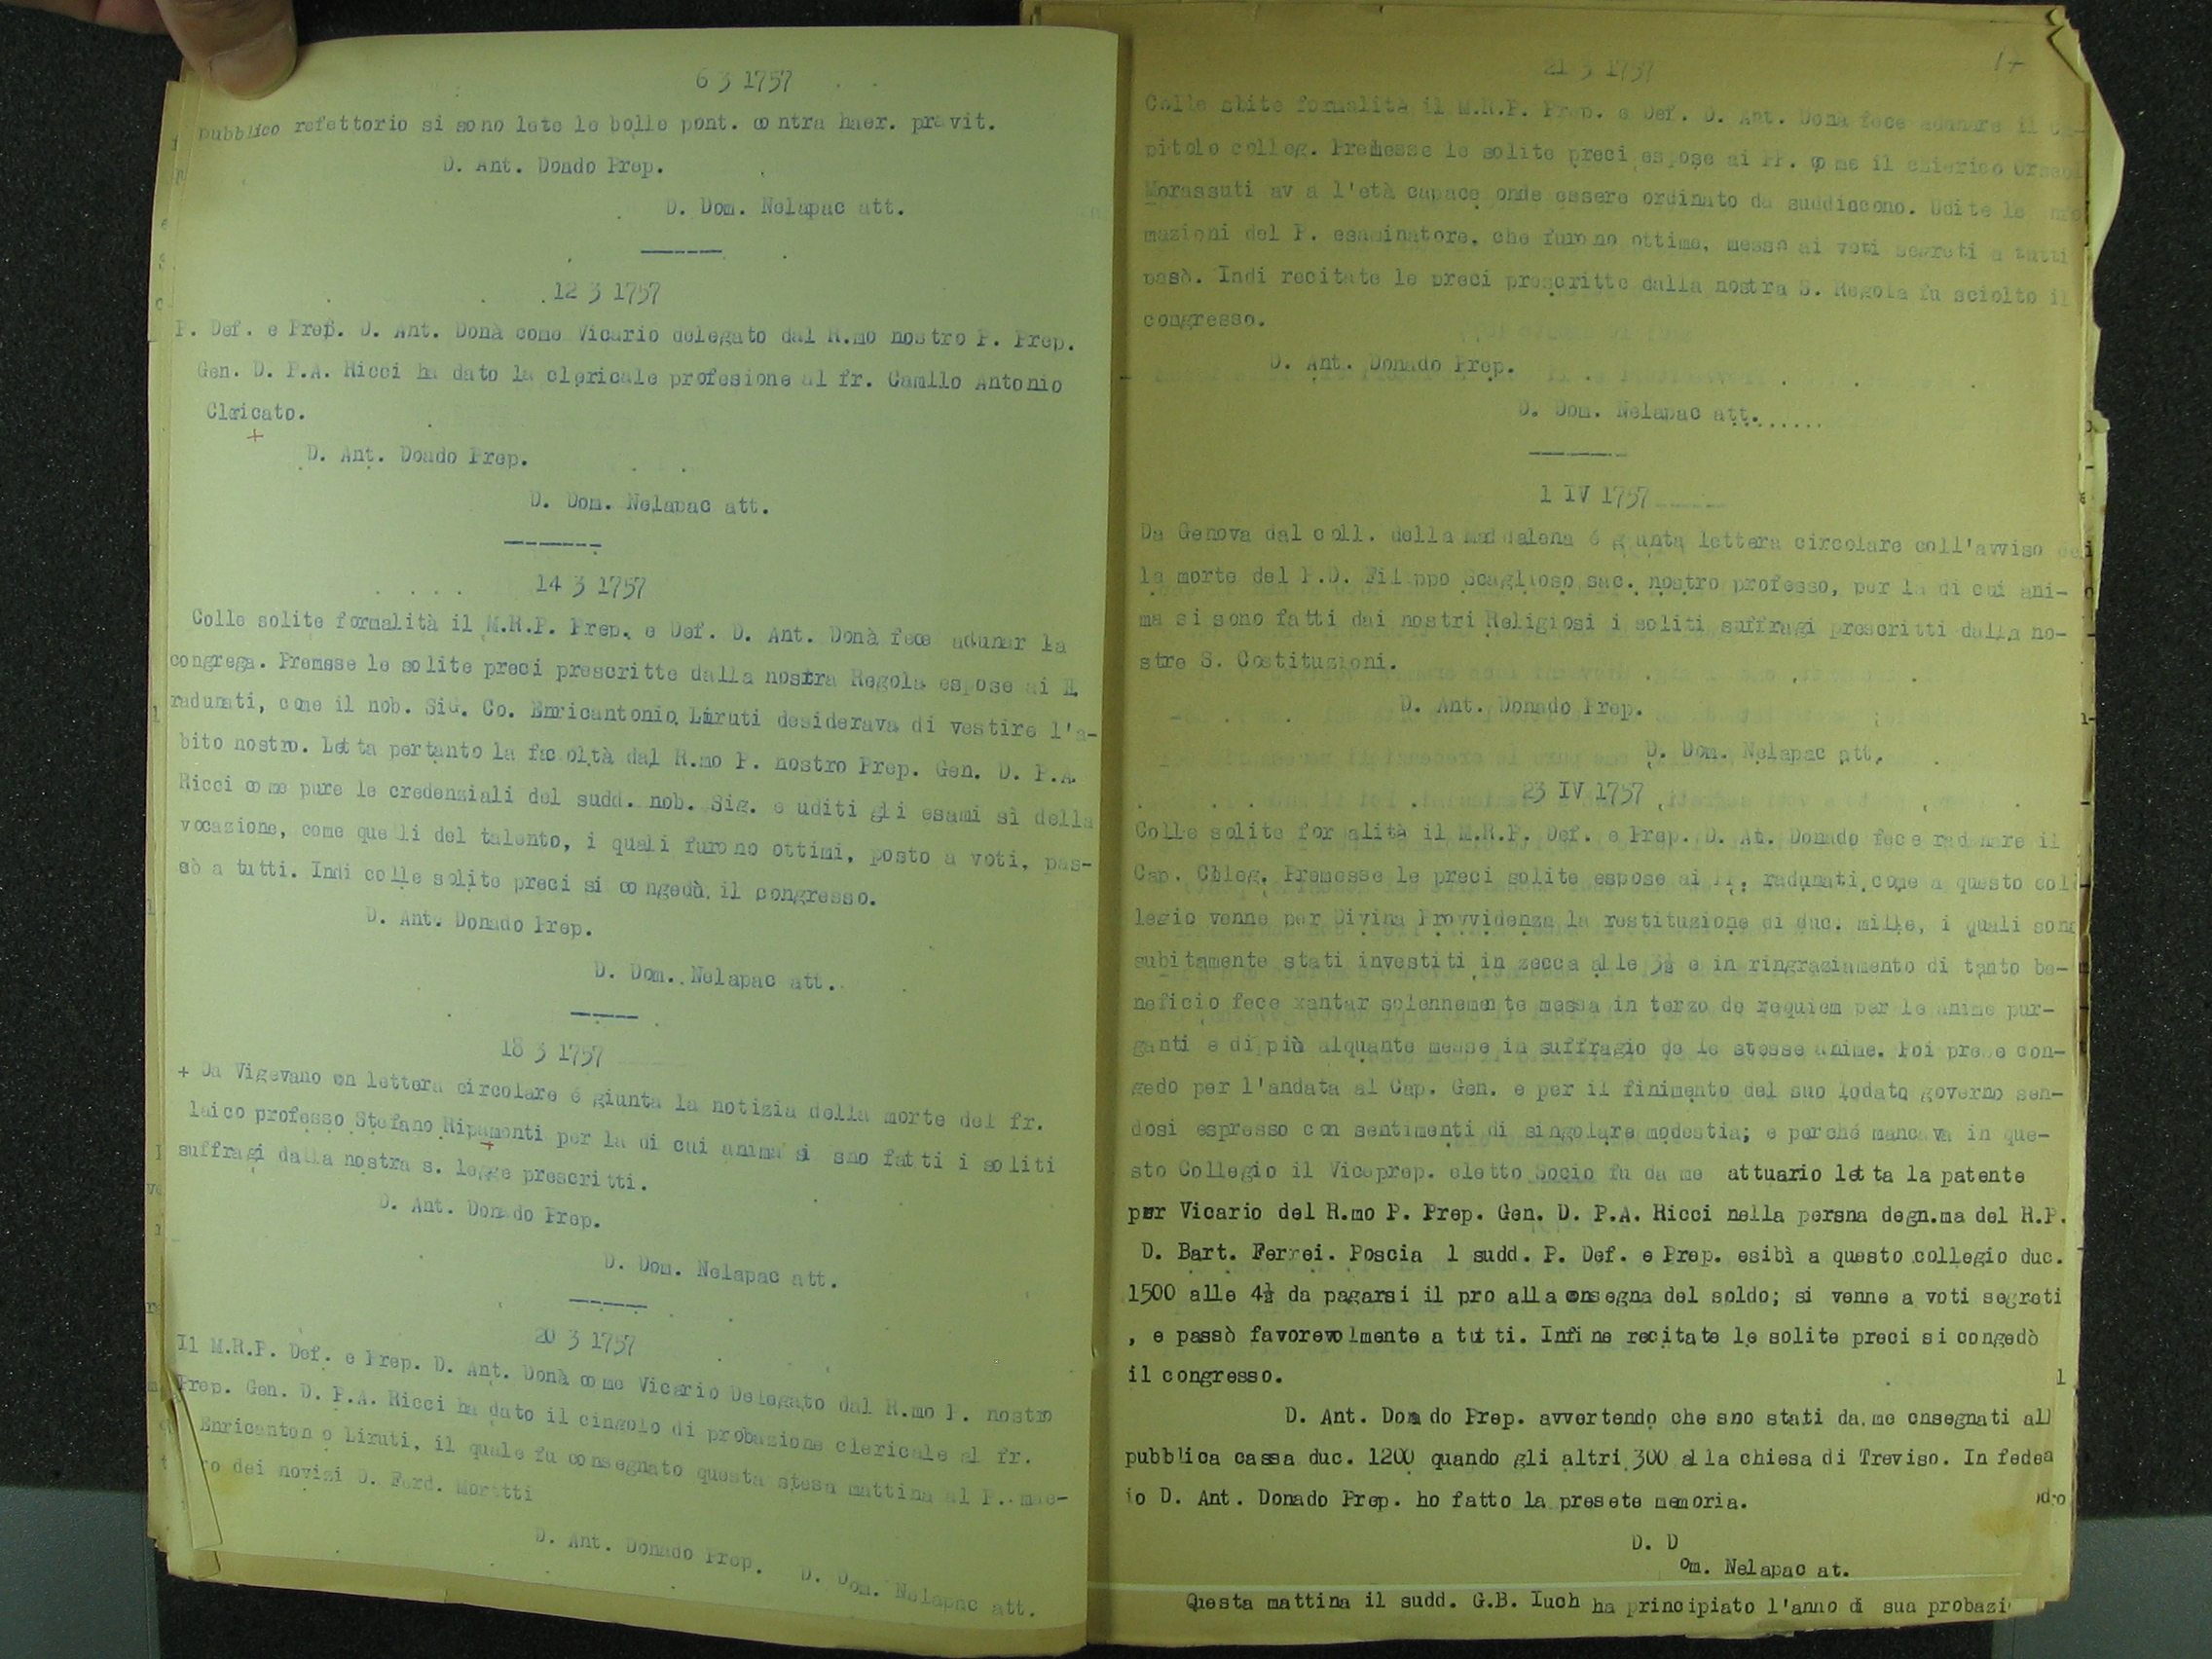 6 3 1757
pubblico refettorio si sono lete le bolle pont. contra haer. pravit.
D. Ant. Doado Prep.
D. Dom. Nelapac att.
12 3 1757
P. Def. e Prep. D. Ant. Donà come Vicario delegato dal R.mo nostro P. Prep.
Gen. D. P.A. Ricci ha dato la clericale profesione al fr. Camllo Antonio
Clericato.
+
D. Ant. Doado Prep.
D. Dom. Nelapac att.
14 3 1757
Colle solite formalità il M.R.P. Prep. e Def. D. Ant. Donà fece adunar la
congrega. Premese le solite preci prescritte dalla nostra Regola espose ai
radunati, come il nob. Sig. Co. Enricantonio Liruti desiderava di vestire l'a-
bito nostro. Letta pertanto la facoltà dal R.mo P. nostro Prep. Gen. D. P.A.
Ricci come pure le credenziali del sudd. nob. Sig. e uditi gli esami sì della
vocazione, come quelli del talento, i quali furono ottimi, posto a voti, pas-
sò a tutti. Indi colle solite preci si congedò il congresso.
D. Ant. Donado Prep.
D. Dom. Nelapac att.
18 3 1757
+ Da Vigevano on lettera circolare é giunta la notizia della morte del fr.
laico professo Stefano Ripamonti per la di cui anima si sno fatti i soliti
+
suffragi dalla nostra s. legge prescritti.
D. Ant. Donado Prep.
D. Dom. Nelapac att.
20 3 1757
Il M.R.P. Def. e Prep. D. Ant. Donà come Vicario Delegato dal R.mo P. nostro
Prep. Gen. D. P.A. Ricci ha dato il cingolo di probazione clericale al fr.
Enricanton o Liruti, il quale fu consegnato questa stesa mattina al P. mae-
ro dei novizi D. Ferd. Moretti
D. Ant. Donado Prep. D. Dom. Nelapac att.
21 3 1757
Colle slite formalità il M.R.P. Prep. e Def. D. Ant. Donà fece adunare il Ca-
pitolo colleg. Premesse le solite preci espose ai PP. come il chierico
Morassuti av a l'età capace onde essere ordinato da suddiacono. Udite le
mazioni del P. esaminatore, che furono ottime, messo ai voti segreti a tutti
pasò. Indi recitate le preci prescritte dalla nostra S. Regola fu sciolto il
congresso.
D. Ant. Donado Prep.
D. Dom. Nelapac att........
1 IV 1757
Da Genova dal coll. della Maddalena é giunta lettera circolare coll'avviso
la morte del P.D. Filippo Scaglioso sac. nostro professo, per la di cui ani-
ma si sono fatti dai nostri Religiosi i soliti suffragi prescritti dalla no-
stre S. Costituzioni.
D. Ant. Donado Prep.
D. Dom. Nelapac att.
23 IV 1757
Colle solite for alità il M.R.P. Def. e Prep. D. At. Donado fece radunare il
Cap. Clleg. Premesse le preci solite espose ai PP. radunati come a questo col
legio venne per Divina Provvidenza la restituzione di duc. mille, i quali sono
subitamente stati investiti in zecca alle 3½ e in ringraziamento di tanto be-
neficio fece xantar solennemente messa in terzo de requiem per le anime pur-
ganti e di più alquante messe in suffragio de le stesse anime. Poi prese con-
gedo per l'andata al Cap. Gen. e per il finimento del suo lodato governo sen-
dosi espresso con sentimenti di singolare modestia; e perché mancava in que-
sto Collegio il Viceprep. eletto Socio fu da me attuario letta la patente
per Vicario del R.mo P. Prep. Gen. D. P.A. Ricci nella persna degn.ma del R.P.
D. Bart. Ferrei. Poscia l sudd. P. Def. e Prep. esibì a questo collegio duc.
1500 alle 4½ da pagarsi il pro alla onsegna del soldo; si venne a voti segreti
, e passò favorevolmente a tutti. Infine recitate le solite preci si congedò
il congresso.
D. Ant. Donado Prep. avvertendo che sno stati da me onsegnati all
pubblica cassa duc. 1200 quando gli altri 300 alla chiesa di Treviso. In fedea
io D. Ant. Donado Prep. ho fatto la presete memoria.
D. D
om. Nelapac at.
Questa mattina il sudd. G.B. Iuch ha principiato l'anno di sua probazi